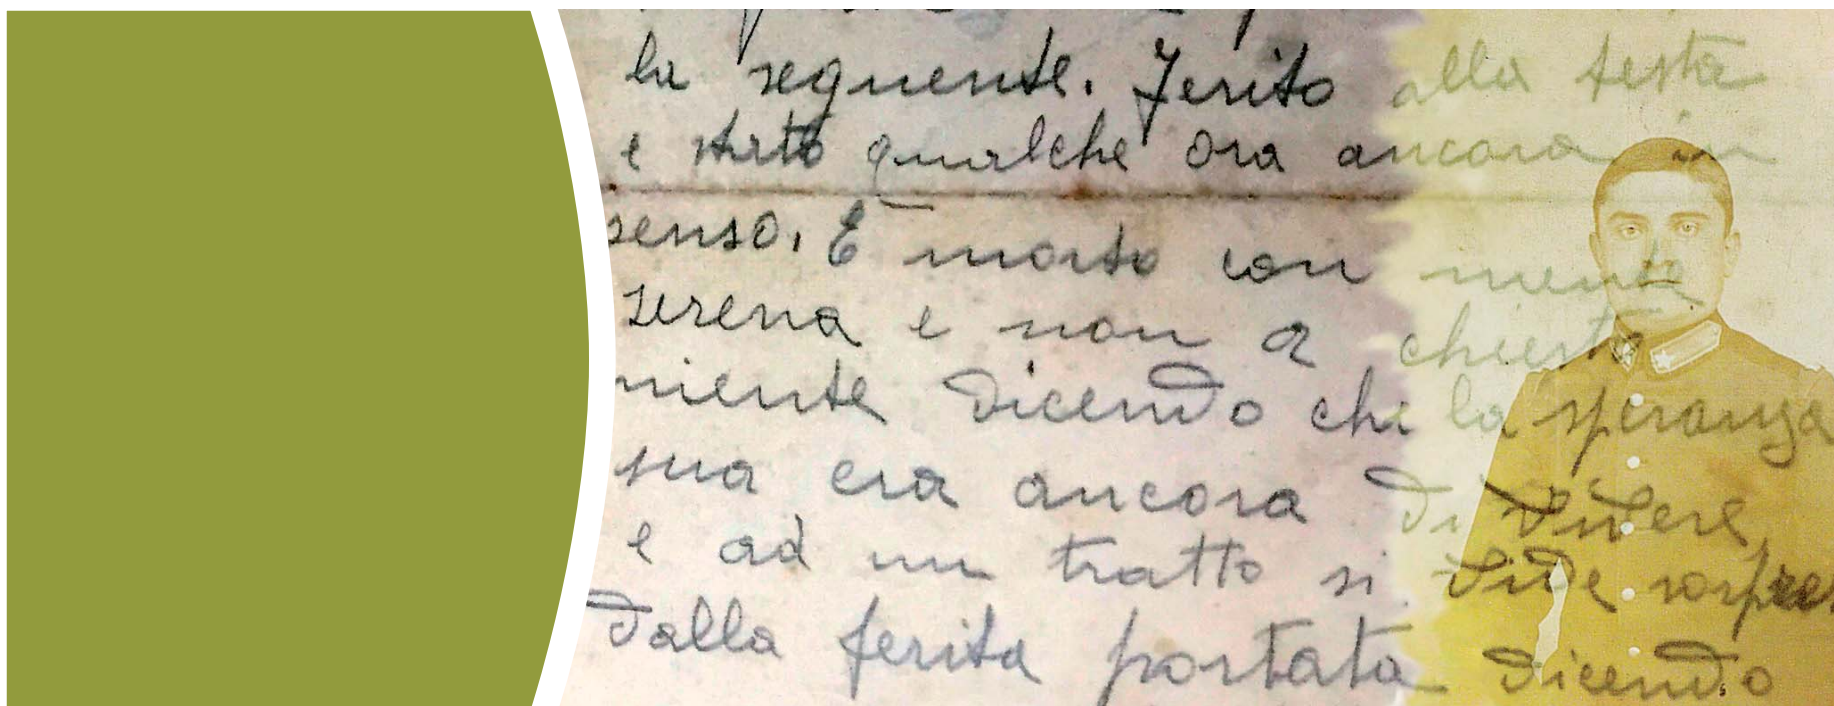 la seguente. Ferito alla testa
e stato qualche ora ancora in
senso. E morto con mente
serena e non a chiesto
niente dicendo che la speranza
sua era ancora di vivere
e ad un tratto si vide sorpres
dalla ferita portata dicendo